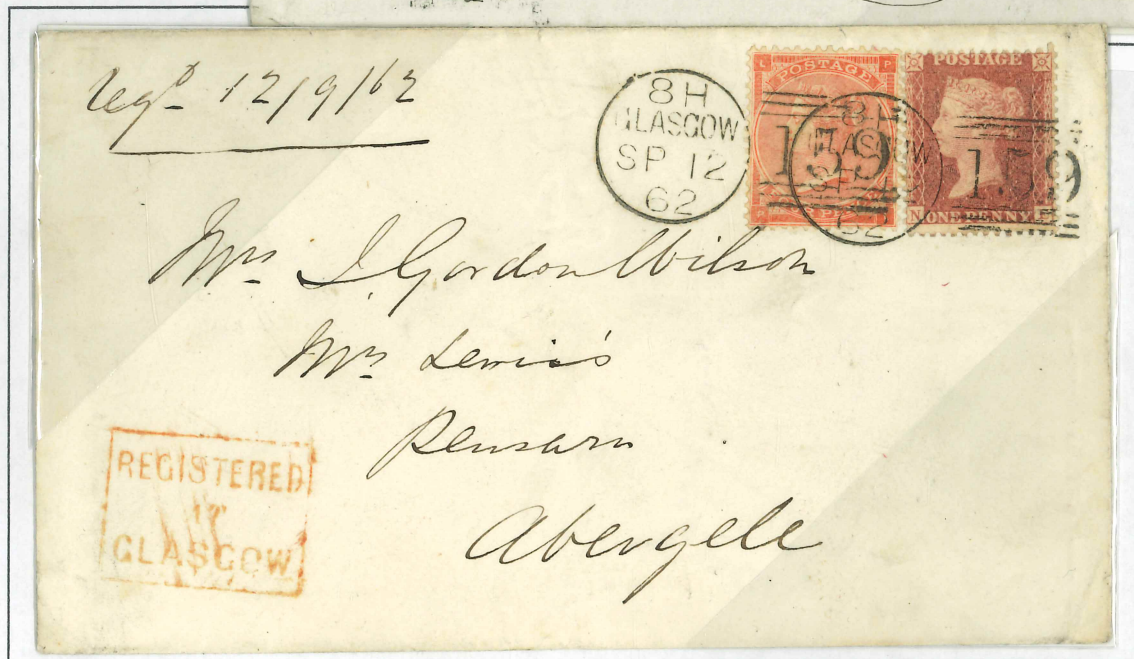 Regd 12/9/62
8H
GLASGOW
SP 12
62
L P
POSTAGE
159
8H
GLASGOW
62
POSTAGE
159
N ONE PENNY
Mrs J. Gordon Wilson
Mrs Lewis's
Pensarn
Abergele
REGISTERED
GLASGOW